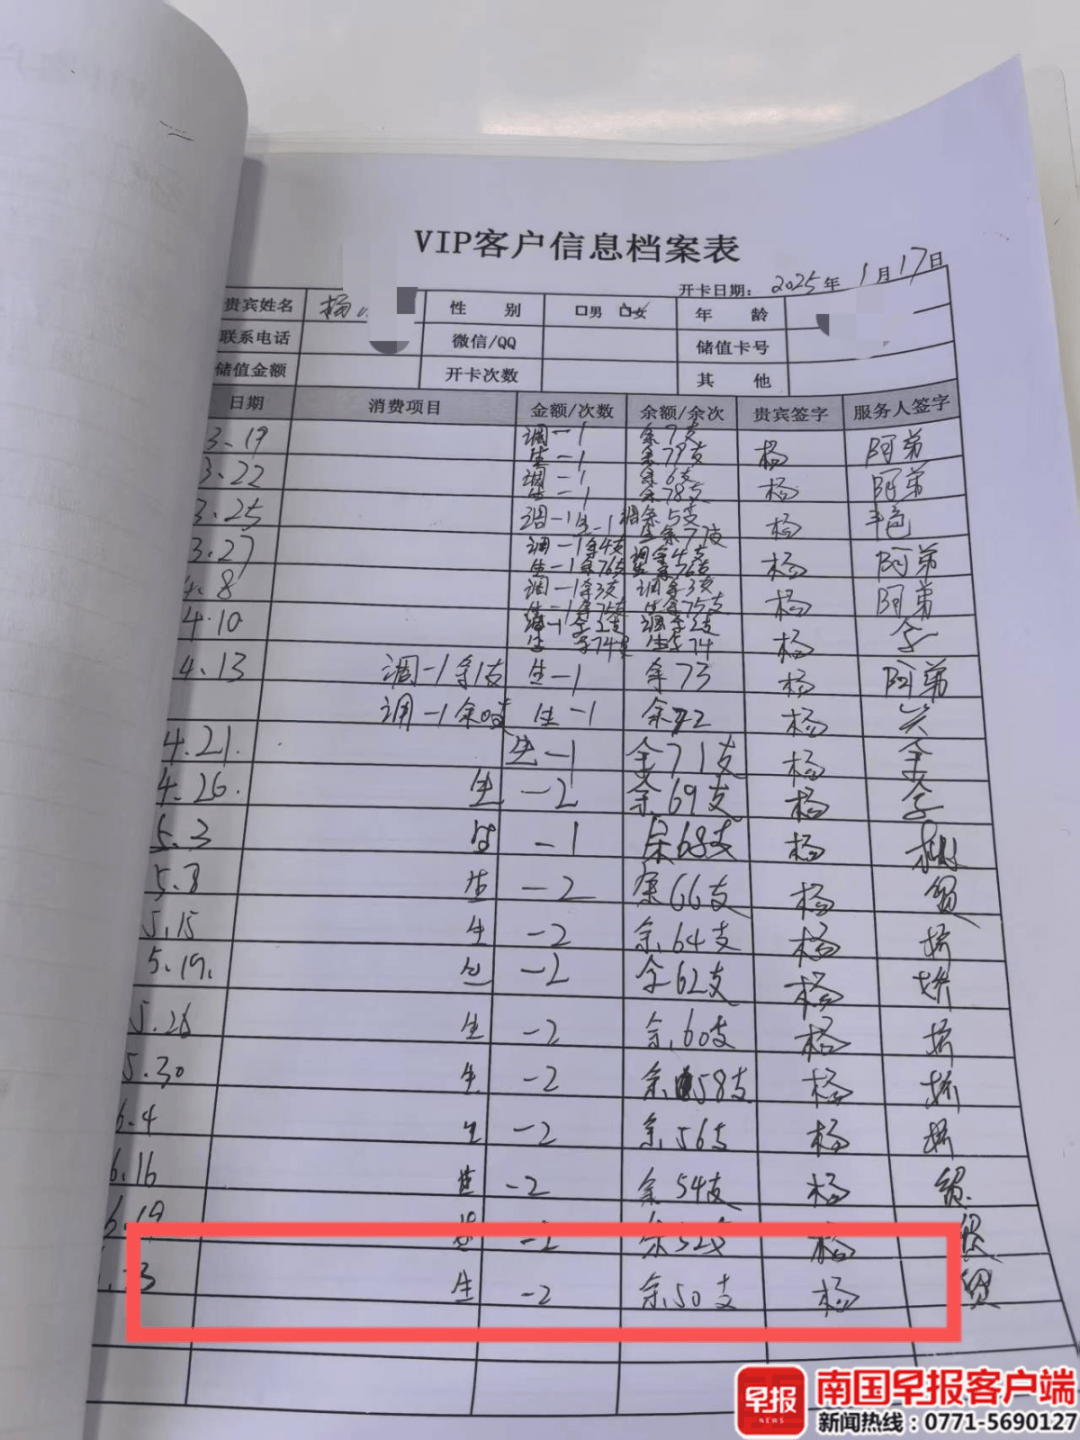 VIP客户信息档案表
开卡日期: 2025年1月17日
贵宾姓名 杨 性别 □男 □女 年龄
联系电话 微信/QQ 储值卡号
储值金额 开卡次数 其他
日期 消费项目 金额/次数 余额/余次 贵宾签字 服务人签字
3.19 调-1 余7支 杨 阿弟
生-1 余79支
3.22 调-1 余6支 杨 阿弟
生-1 余78支
3.25 调-1 生-1 调余5支 杨
生余77支
3.27 调-1余4支 调余4支 杨 阿弟
生-1余76支 生余76支
4.8 调-1余3支 调余3支 杨 阿弟
生-1余75支 生余75支
4.10 调-1余2支 调余2支 杨
生 余74支 生余74
4.13 调-1余1支 生-1 余73 杨 阿弟
调-1余0支 生-1 余72 杨
4.21. 生-1 余71支 杨
4.26. 生 -2 余69支 杨
5.3 生 -1 余68支 杨
5.8 生 -2 余66支 杨
5.15 生 -2 余.64支 杨
5.19. 生 -2 余62支 杨
5.26 生 -2 余.60支 杨
5.30 生 -2 余.58支 杨
6.4 生 -2 余.56支 杨
6.16 生 -2 余54支 杨
6.19 生 -2 余52支 杨
.3 生 -2 余.50支 杨
早报
NEWS
南国早报客户端
新闻热线：0771-5690127